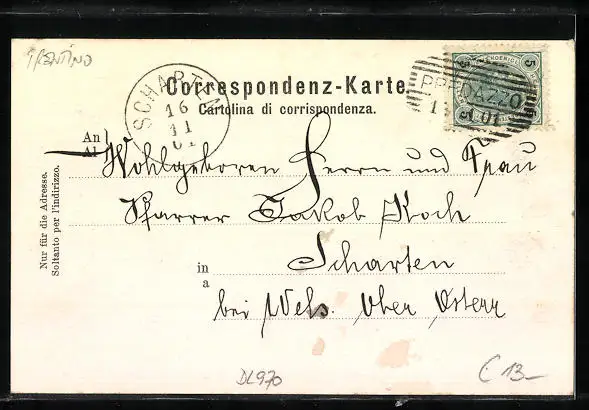 TRENTINO
Correspondenz-Karte.
Cartolina di corrispondenza.
SCHARTEN
16
11
01
5 5
PREDAZZO
1 01
An
Al
Wohlgeboren Herrn und Frau
Pfarrer Jakob Koch
in
a
Scharten
bei Wels. Ober Österr
Nur für die Adresse.
Soltanto per l'indirizzo.
DL970
€ 13—